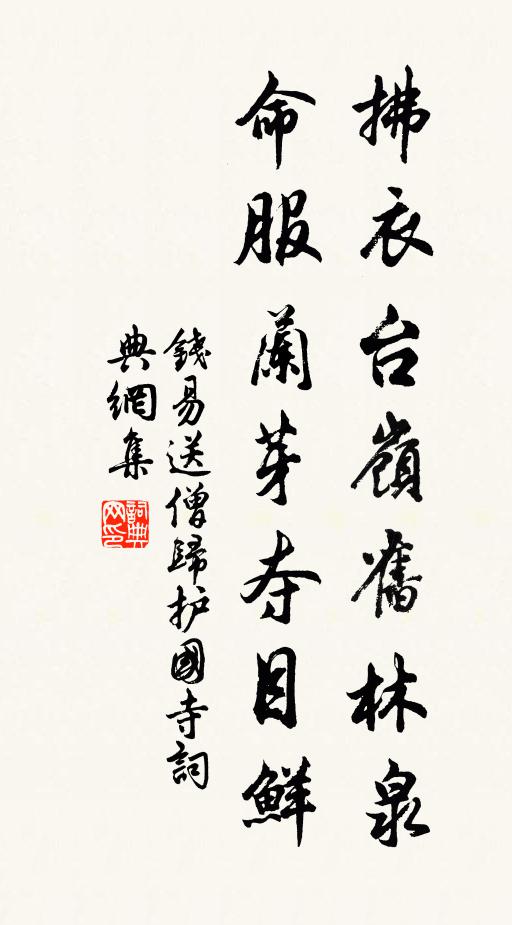 拂衣台嶺舊林泉
命服蘭芽夺目鮮
錢易送僧歸护國寺詞
典網集
詞典
网印